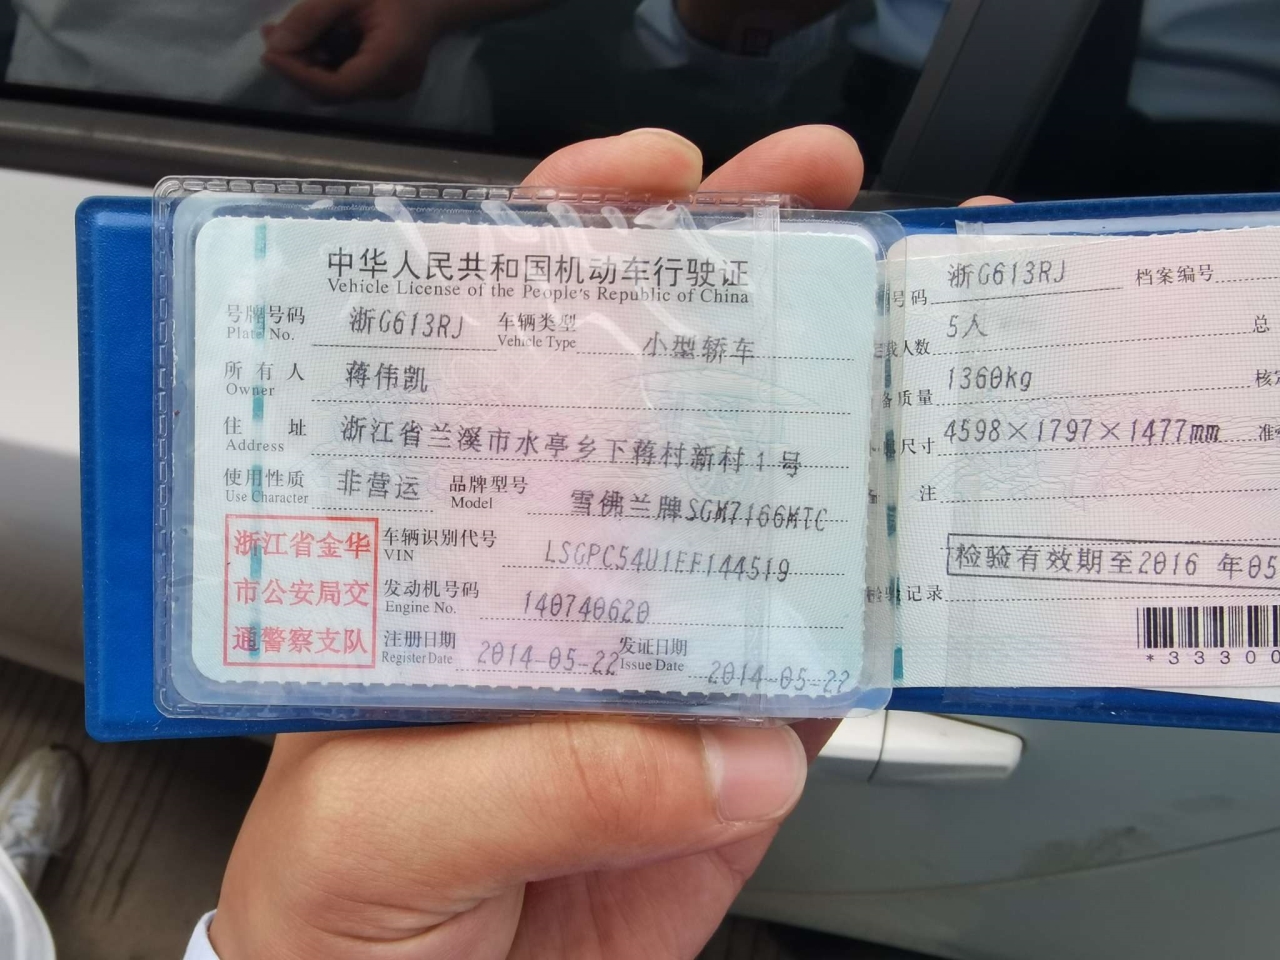 中华人民共和国机动车行驶证
Vehicle License of the People's Republic of China
号牌号码 浙G613RJ 车辆类型 小型轿车
Plate No. Vehicle Type
所有人 蒋伟凯
Owner
住址 浙江省兰溪市水亭乡下蒋村新村1号
Address
使用性质 非营运 品牌型号 雪佛兰牌SGM7166MTC
Use Character Model
浙江省金华
市公安局交
通警察支队
车辆识别代号 LSGPC54U1EF144519
VIN
发动机号码 140740620
Engine No.
注册日期 2014-05-22 发证日期 2014-05-22
Register Date Issue Date
号码 浙G613RJ 档案编号
人数 5人 总
质量 1360kg 核定
尺寸 4598×1797×1477mm 准
注
检验有效期至2016 年05
记录
*33300